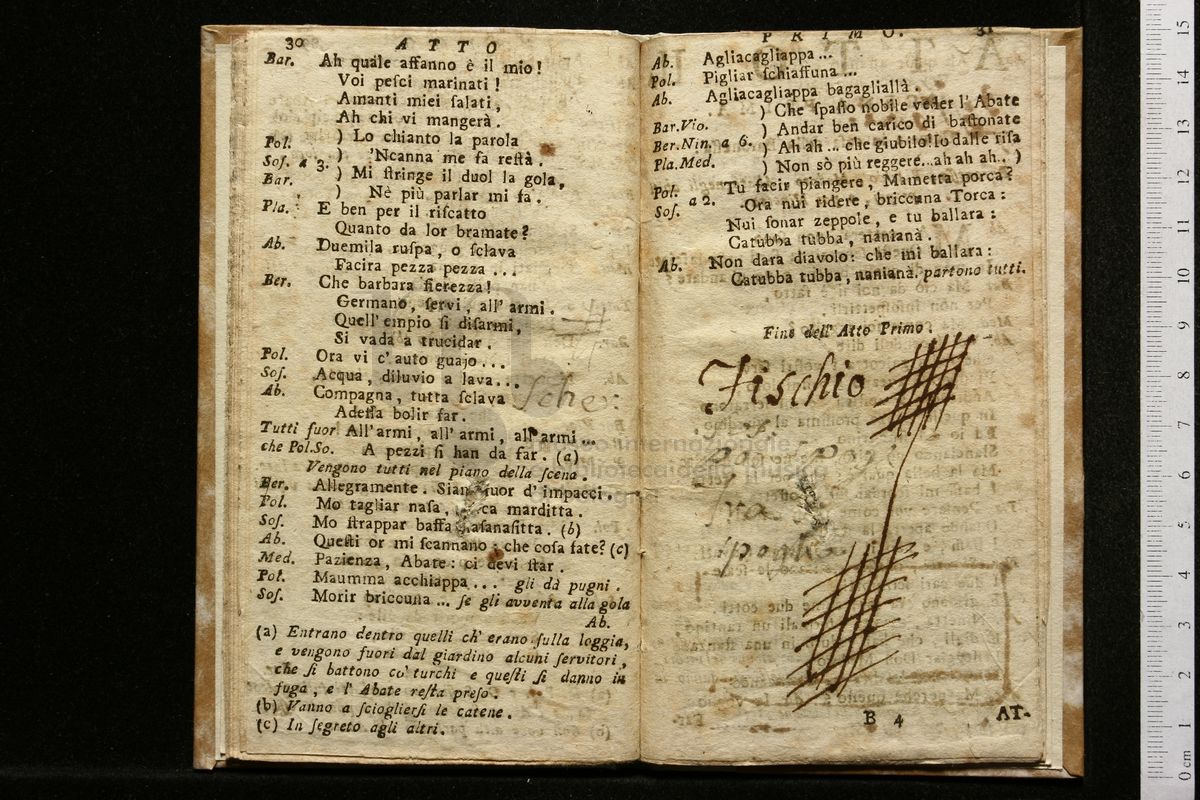 30 ATTO
Bar. Ah quale affanno è il mio!
Voi pesci marinati!
Amanti miei salati,
Ah chi vi mangerà.
Pol. ) Lo chianto la parola
Sos. a 3. ) 'Ncanna me fa restà.
Bar. ) Mi stringe il duol la gola,
) Nè più parlar mi fa.
Pla. E ben per il riscatto
Quanto da lor bramate?
Ab. Duemila ruspa, o sclava
Facira pezza pezza ...
Ber. Che barbara fierezza!
Germano, servi, all' armi.
Quell' empio si disarmi,
Si vada a trucidar.
Pol. Ora vi c' auto guajo...
Sos. Acqua, diluvio a lava...
Ab. Compagna, tutta sclava
Adessa bolir far.
Tutti fuor All' armi, all' armi, all' armi ...
che Pol.So. A pezzi si han da far. (a)
Vengono tutti nel piano della scena.
Ber. Allegramente. Siam fuor d' impacci.
Pol. Mo tagliar nasa, marditta.
Sos. Mo strappar baffa (b)
Ab. Questi or mi scannano: che cosa fate? (c)
Med. Pazienza, Abate: ci devi star.
Pol. Maumma acchiappa ... gli dà pugni.
Sos. Morir briccuna ... se gli avventa alla gola
Ab.
(a) Entrano dentro quelli ch' erano sulla loggia,
e vengono fuori dal giardino alcuni servitori,
che si battono co' turchi e questi si danno in
fuga, e l' Abate resta preso.
(b) Vanno a sciogliersi le catene.
(c) In segreto agli altri.
PRIMO. 31
Ab. Agliacagliappa ...
Pol. Pigliar schiaffuna ...
Ab. Agliacagliappa bagagliallà.
) Che spasso nobile veder l' Abate
Bar.Vio. ) Andar ben carico di bastonate
Ber.Nin. a 6. ) Ah ah ... che giubilo! Io dalle risa
Pla.Med. ) Non sò più reggere... ah ah ah.. )
Pol. Tu facir piangere, Mametta porca?
Sos. a 2. Ora nui ridere, briccuna Torca:
Nui sonar zeppole, e tu ballara:
Catubba tubba, nanianà.
Ab. Non dara diavolo: che mi ballara:
Catubba tubba, nanianà. partono tutti.
Fine dell' Atto Primo.
Fischio
B 4
AT-